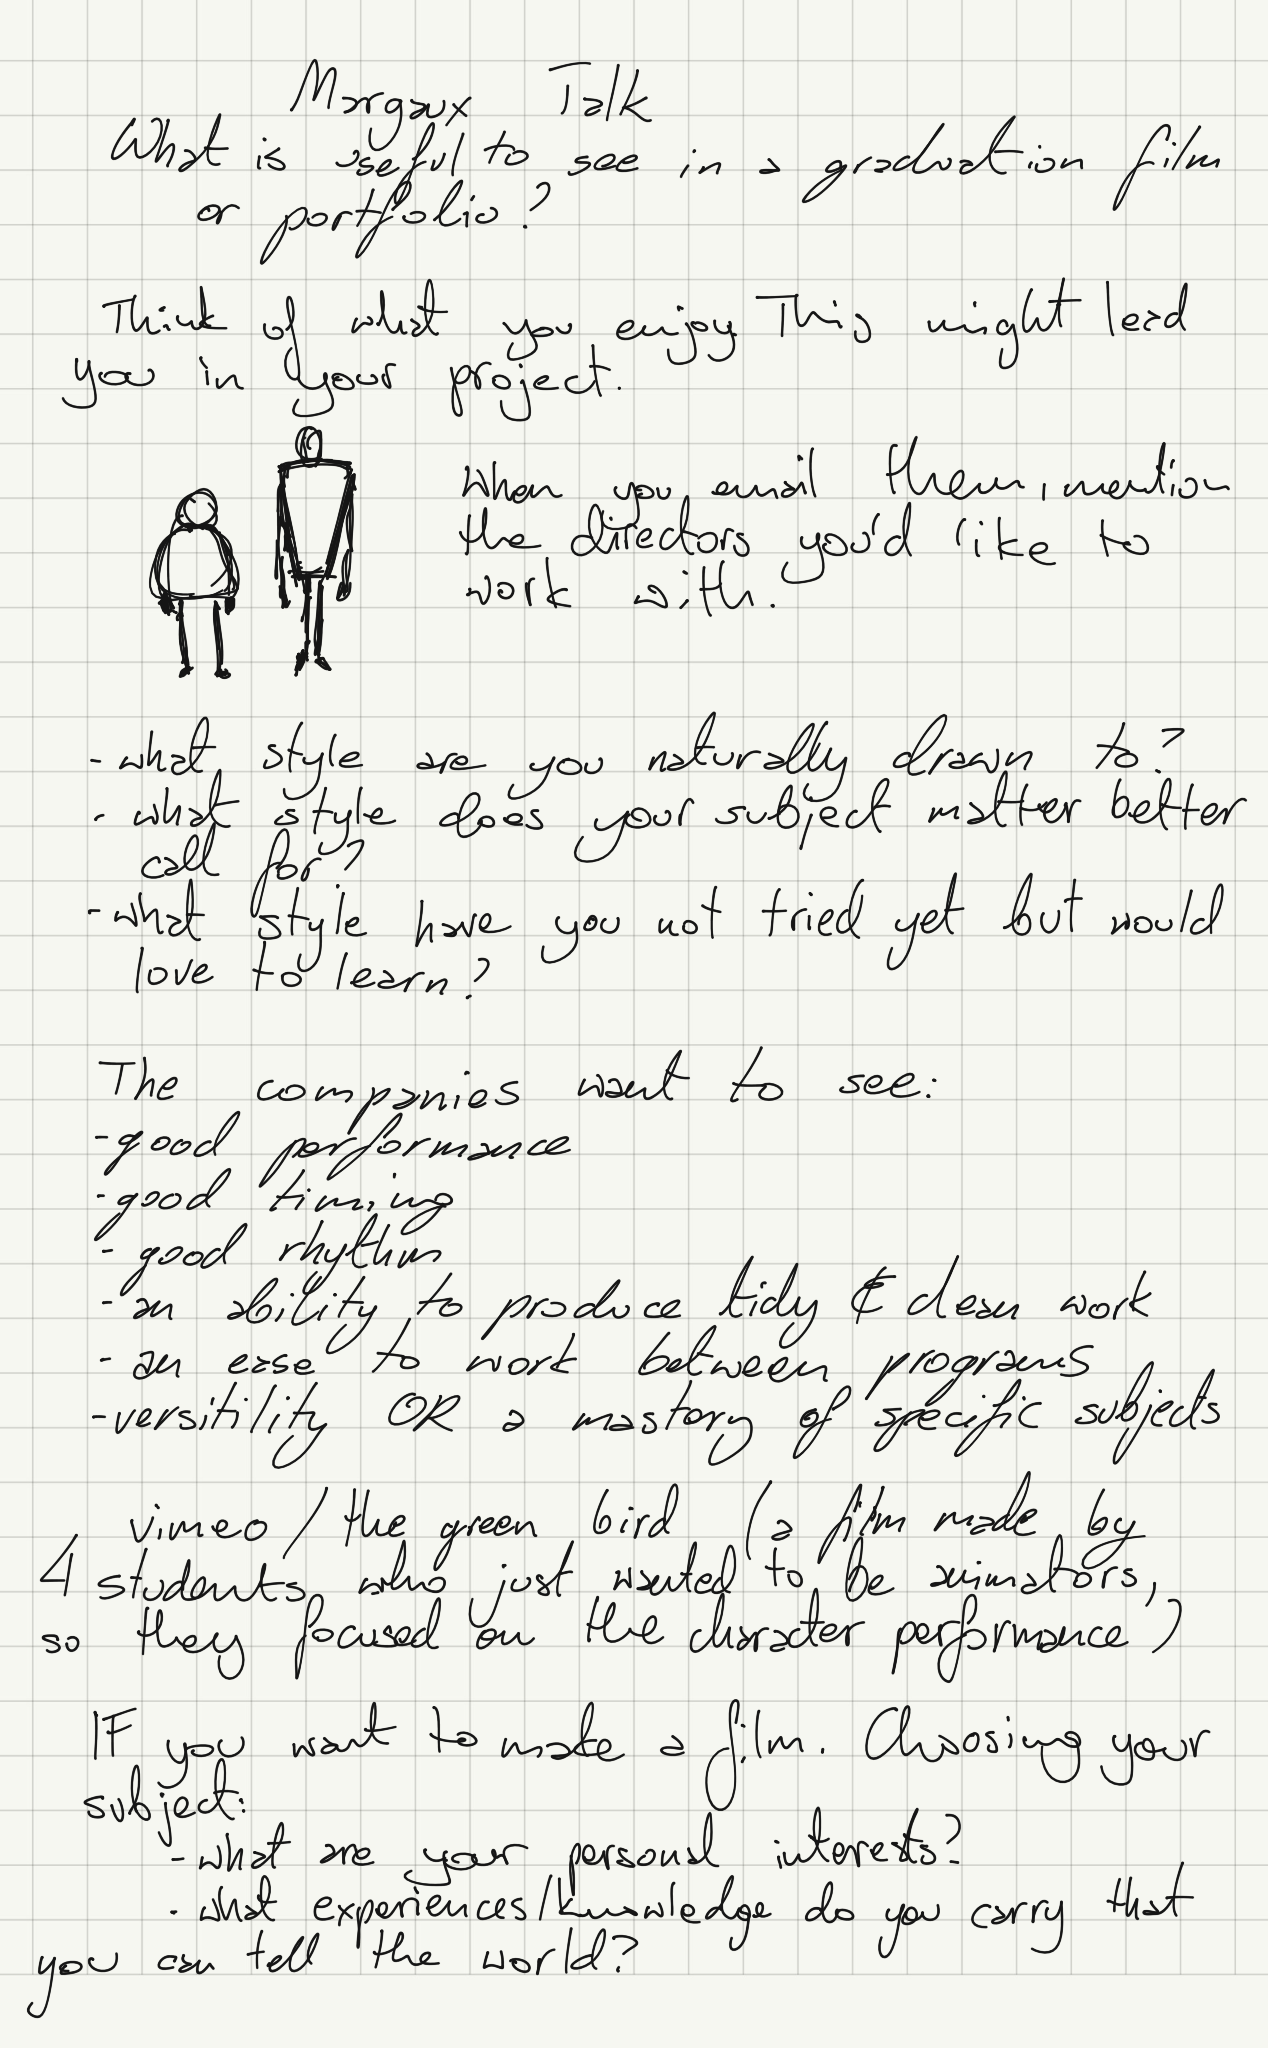 Margaux Talk
What is useful to see in a graduation film
or portfolio?
Think of what you enjoy. This might lead
you in your project.
When you email them, mention
the directors you'd like to
work with.
- what style are you naturally drawn to?
- what style does your subject matter better
call for?
- what style have you not tried yet but would
love to learn?
The companies want to see:
- good performance
- good timing
- good rhythm
- an ability to produce tidy & clean work
- an ease to work between programs
- versitility OR a mastory of specific subjects
vimeo / the green bird (a film made by
4 students who just wanted to be animators,
so they focused on the character performance)
IF you want to make a film. Choosing your
subject:
- what are your personal interests?
- what experiences/knowledge do you carry that
you can tell the world?